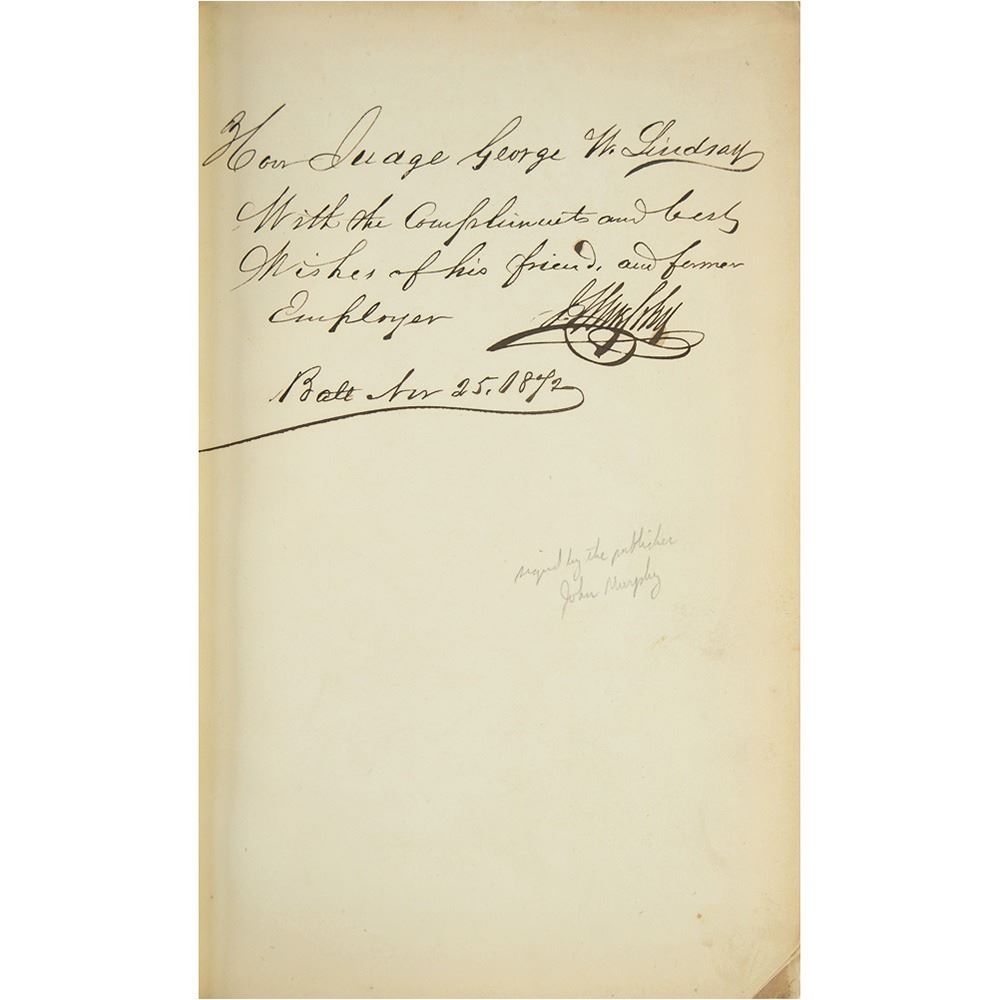 Hon Judge George W. Lindsay
With the Compliments and best
Wishes of his friend, and former
Employer J. Murphy
Balt Nov 25, 1872
signed by the publisher
John Murphy